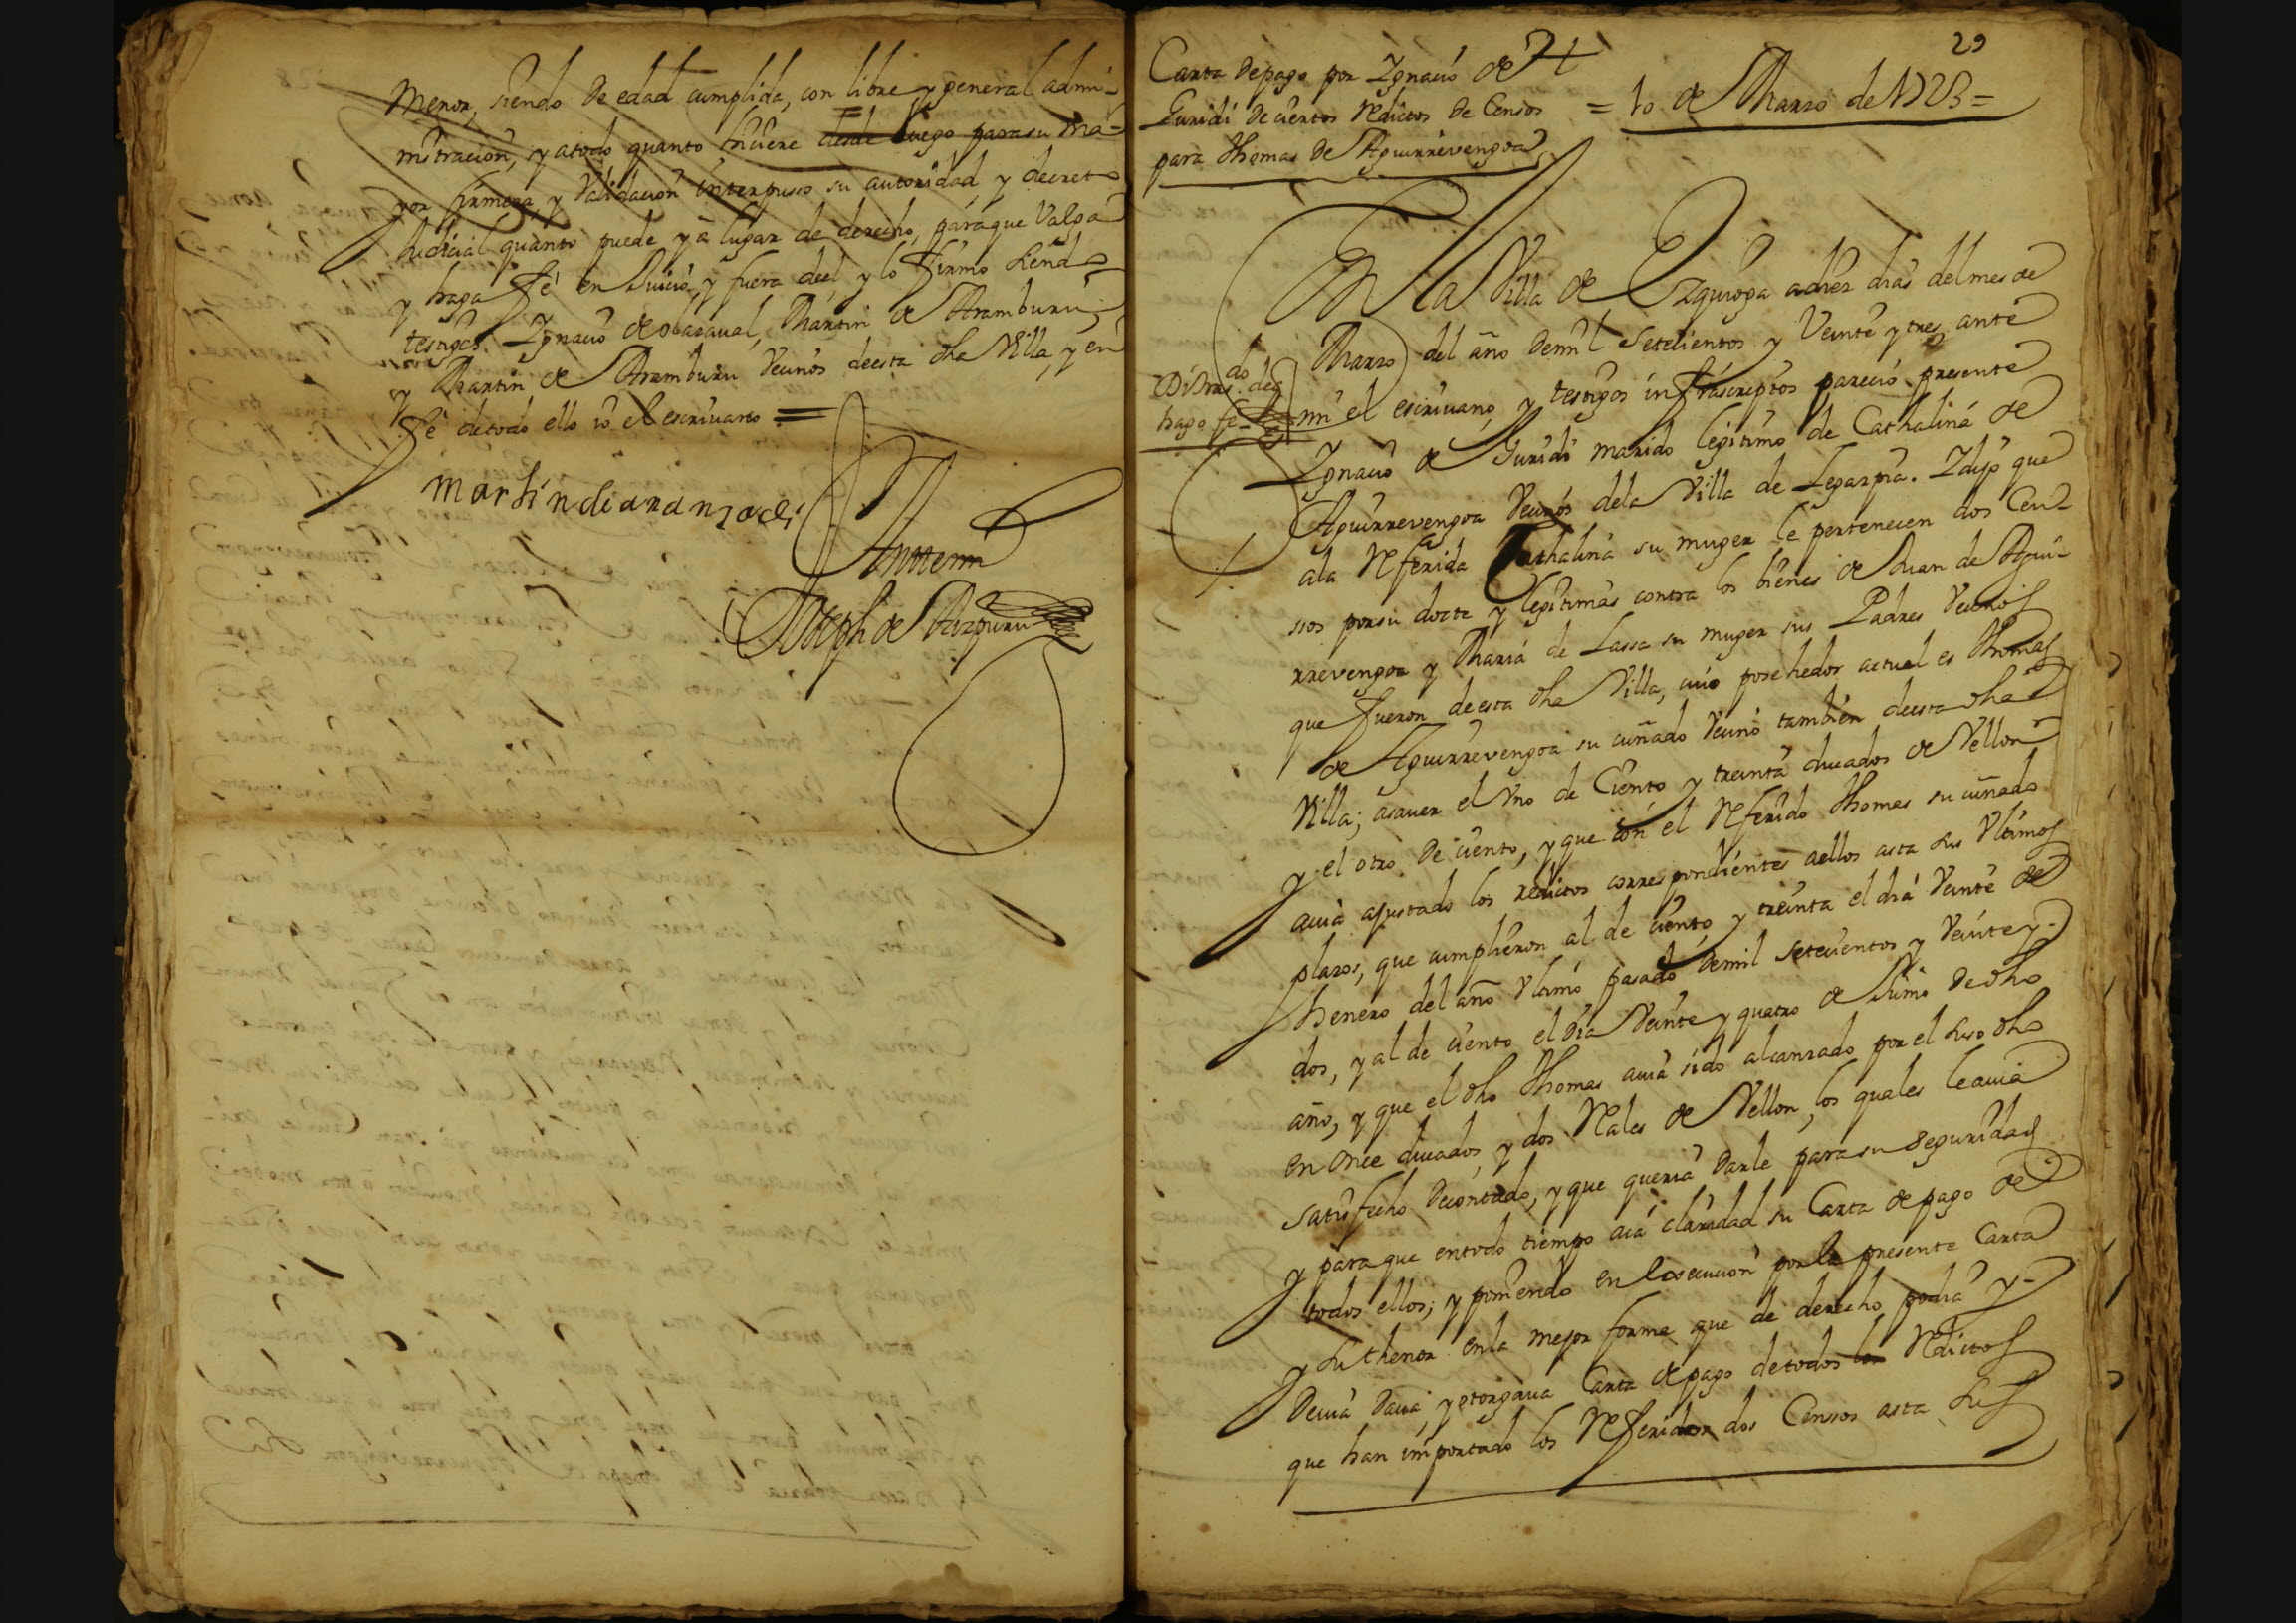 Menor, siendo de edad cumplida, con libre y general admi-
nistracion, y atodo quanto hiciere desde luego para su ma-
yor firmeza, y Validacion interpuso su autoridad, y decreto
Judicial quanto puede y à lugar de derecho, para que Valga
y haga fé en Juicio, y fuera de el y lo firmo siendo
testigos Ignacio de olazaual, Martin de Aramburu,
y Martin de Aramburu Vecinos de esta dha Villa, y en
fé de todo ello io el escriuano =
Martin di aranzadi
Antemi
Joseph de Aizpuru
29
Carta de pago por Ignacio de
Guridi de ciertos Reditos de Censos
para Thomas de Aguirrevengoa
= 10 de Marzo de 1723 =
En la Villa de Ezquioga a diez dias del mes de
Marzo del año de mil Setecientos y Veinte y tres, ante
mi el escriuano, y testigos infrascriptos parecio presente
Ignacio de Guridi marido legitimo de Cathalina de
Aguirrevengoa Vecinos de la Villa de Legazpia. I dijo que
a la Referida Cathalina su muger le pertenecen dos Cen-
sos por su docte y legitimas contra los bienes de Juan de Agui-
rrevengoa y Maria de Lassa su muger sus Padres Vecinos
que fueron de esta dha Villa, cuio posehedor actual es Thomas
de Aguirrevengoa su cuñado Vecino tambien de esta dha
Villa; asauer el Vno de Ciento y treinta ducados de Vellon
y el otro de ciento, y que con el Referido Thomas su cuñado
auia ajustado los reditos correspondientes a ellos asta sus Vltimos
plazos, que cumplieron al de ciento y treinta el dia Veinte de
henero del año Vltimo pasado de mil Setecientos y Veinte y-
dos, y al de ciento el dia Veinte y quatro de Junio de dho
año, y que el dho Thomas auia sido alcanzado por el suso dho
en once ducados, y dos Reales de Vellon, los quales le auia
satisfecho de contado, y que queria darle para su seguridad
y para que en todo tiempo aia claridad su Carta de pago de
todos ellos; y poniendo en ejecucion por la presente Carta
y su thenor en la mejor forma que de derecho podia y-
deuia daua, y otorgaua Carta de pago de todos los Reditos
que han importado los Referidos dos Censos asta sus